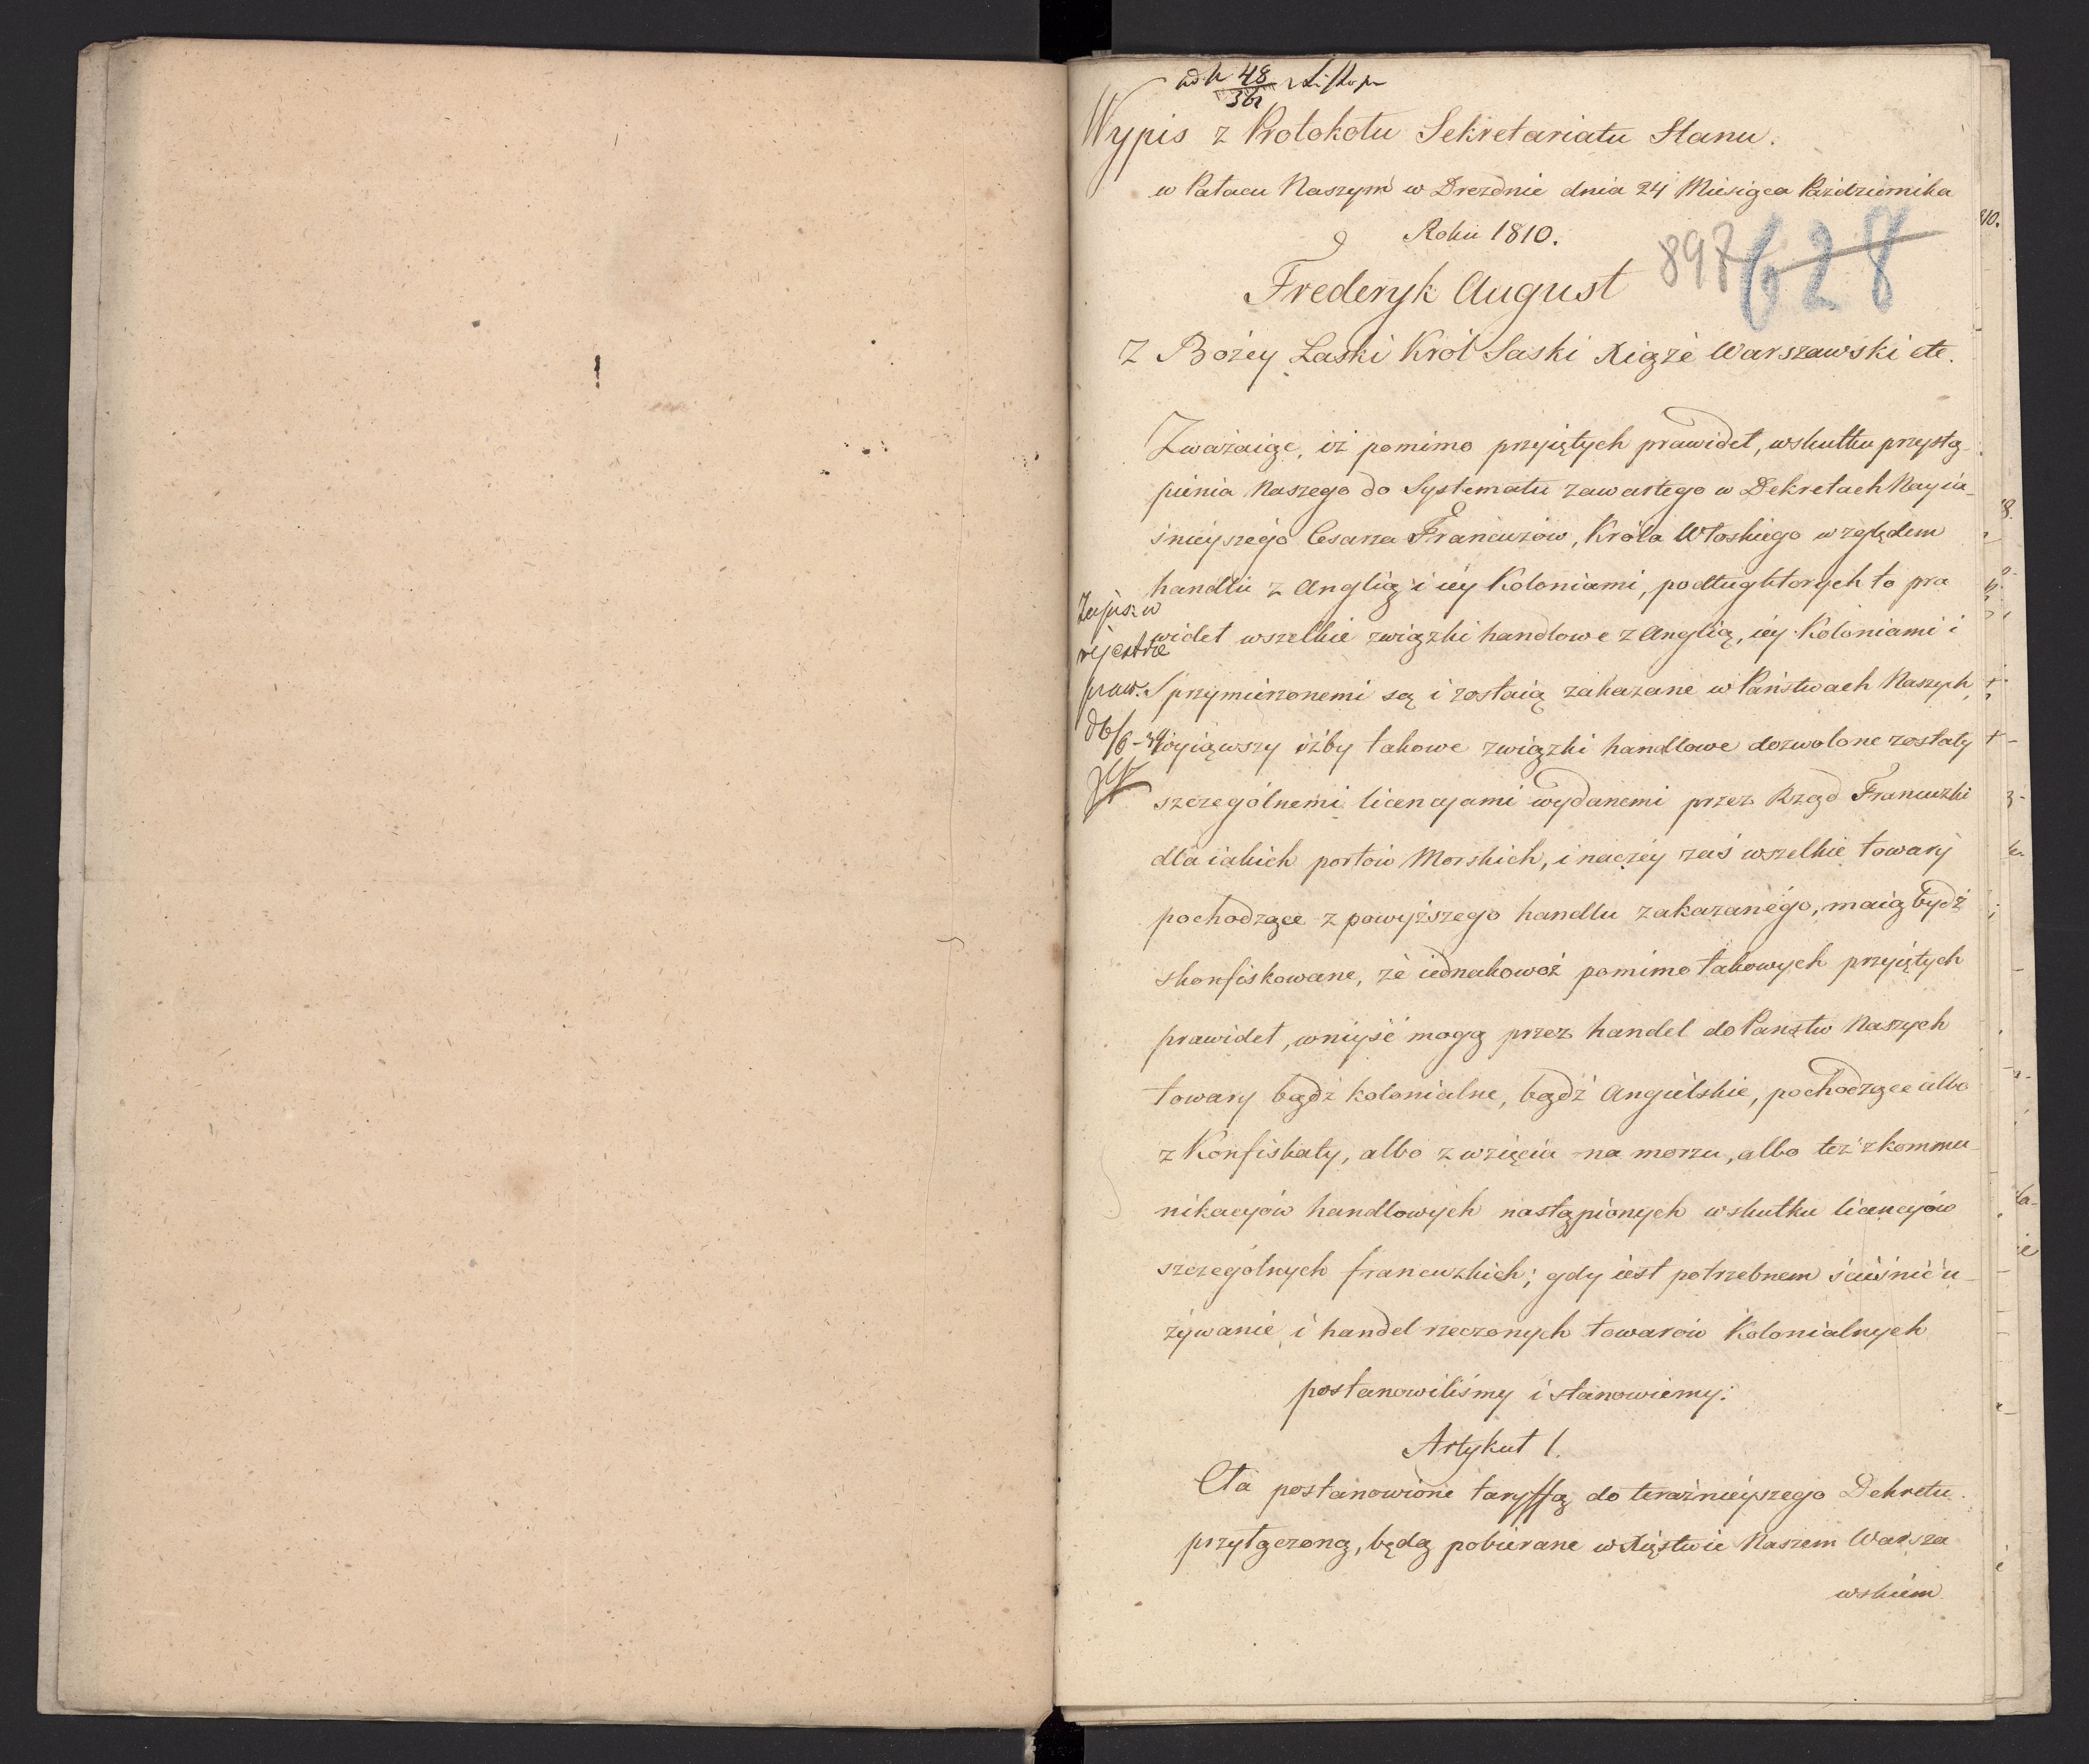 48
36
Wypis z Protokołu Sekretariatu Stanu.
w Pałacu Naszym w Dreznie dnia 24 Miesiąca Października
Roku 1810.
897 628
Frederyk August
Z Bożey Łaski Król Saski Xiąże Warszawski etc.
Zważaiąc, iż pomimo przyiętych prawideł, wskutku przystą-
pienia Naszego do Systematu zawartego w Dekretach Nayia-
śnieyszego Cesarza Francuzów, Króla Włoskiego względem
handlu z Anglią i iéy Koloniami, podług ktorych to pra
wideł wszelkie związki handlowe z Anglią, iéy Koloniami i
Sprzymierzonemi są i zostaią zakazane w Państwach Naszych,
wyiąwszy iżby takowe związki handlowe dozwolone zostały
szczególnemi licencyami wydanemi przez Rząd Francuzki
dla iakich portów Morskich, inaczéy zaś wszelkie towary
pochodzące z powyższego handlu zakazanégo, maią bydź
skonfiskowane, że iednakowoż pomimo takowych przyiętych
prawideł, wniyść mogą przez handel do Państw Naszych
towary bądź kolonialne, bądź Angielskie, pochodzące albo
z Konfiskaty, albo z wzięcia na morzu, albo też z kommu-
nikacyów handlowych nastąpionych wskutku licencyów
szczególnych francuzkich; gdy iest potrzebnem ścieśnić u-
żywanie, i handel rzeczonych towarów Kolonialnych
postanowiliśmy i stanowiemy:
Artykuł 1.
Cła postanowione taryffą do teraźnieyszego Dekretu
przyłączoną, będą pobierane w Xięstwie Naszem Warsza
wskiem
Zapis: w
rejestrze
praw.